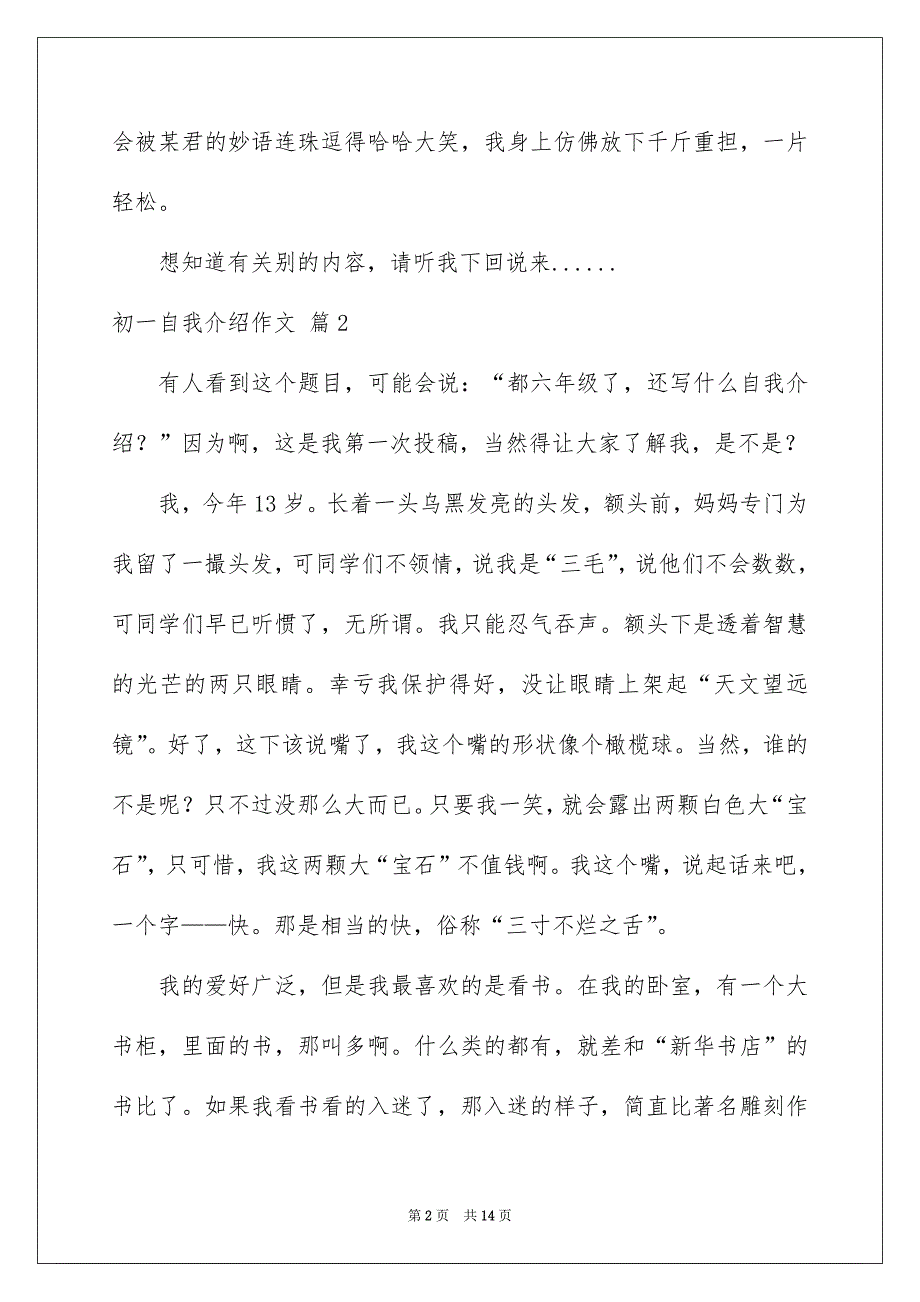 会被某君的妙语连珠逗得哈哈大笑，我身上仿佛放下千斤重担，一片
轻松。
想知道有关别的内容，请听我下回说来......
初一自我介绍作文 篇2
有人看到这个题目，可能会说：“都六年级了，还写什么自我介
绍？”因为啊，这是我第一次投稿，当然得让大家了解我，是不是？
我，今年 13 岁。长着一头乌黑发亮的头发，额头前，妈妈专门为
我留了一撮头发，可同学们不领情，说我是“三毛”，说他们不会数数，
可同学们早已听惯了，无所谓。我只能忍气吞声。额头下是透着智慧
的光芒的两只眼睛。幸亏我保护得好，没让眼睛上架起“天文望远
镜”。好了，这下该说嘴了，我这个嘴的形状像个橄榄球。当然，谁的
不是呢？只不过没那么大而已。只要我一笑，就会露出两颗白色大“宝
石”，只可惜，我这两颗大“宝石”不值钱啊。我这个嘴，说起话来吧，
一个字——快。那是相当的快，俗称“三寸不烂之舌”。
我的爱好广泛，但是我最喜欢的是看书。在我的卧室，有一个大
书柜，里面的书，那叫多啊。什么类的都有，就差和“新华书店”的
书比了。如果我看书看的入迷了，那入迷的样子，简直比著名雕刻作
第 2 页 共 14 页